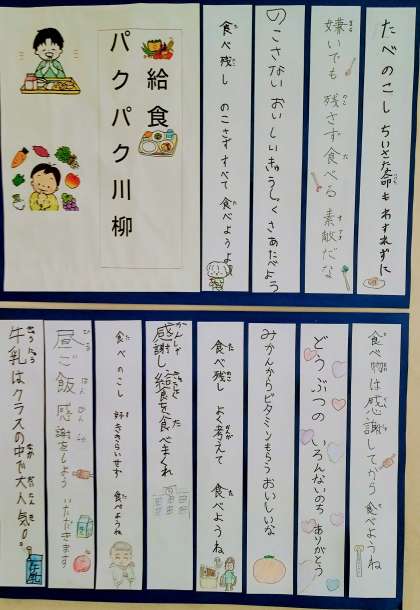 給食
パクパク川柳
たべのこし ちいさな命も わすれずに
嫌いでも 残さず食べる 素敵だな
のこさない おいしいきゅうしょく さあたべよう
食べ残し のこさずすべて 食べようよ
食べ物は 感謝してから 食べようね
どうぶつの いろんないのち ありがとう
みかんから ビタミンもらう おいしいな
食べ残し よく考えて 食べようね
感謝し 給食を 食べまくれ
食べのこし 好ききらいせず 食べようね
昼ご飯 感謝をしよう いただきます
牛乳は クラスの中で 大人気。